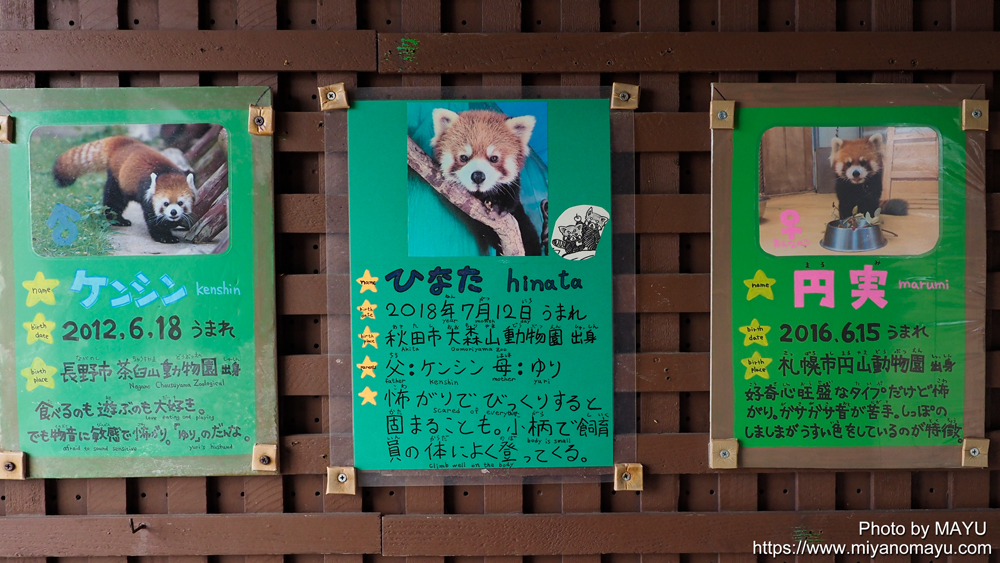 name ケンシン kenshin
birth date 2012.6.18 うまれ
birth place 長野市 茶臼山動物園 出身
食べるのも遊ぶのも大好き。
love eating and playing
でも物音に敏感で怖がり。"ゆり"のだんな。
yuri's husband
name ひなた hinata
birth date 2018年7月12日 うまれ
birth place 秋田市大森山動物園 出身
Akita Oomoriyama Zoo
parents 父:ケンシン 母:ゆり
father kenshin mother yuri
怖がりでびっくりすると
scared of everyone
固まることも。小柄で飼育
body is small
員の体によく登ってくる。
Climb well on the body
name 円実 marumi
まるみ
birth date 2016.6.15 うまれ
birth place 札幌市円山動物園 出身
好奇心旺盛なタイプだけど怖
がり。ガサガサ音が苦手。しっぽの
しましまがうすい色をしているのが特徴。
Photo by MAYU
https://www.miyanomayu.com